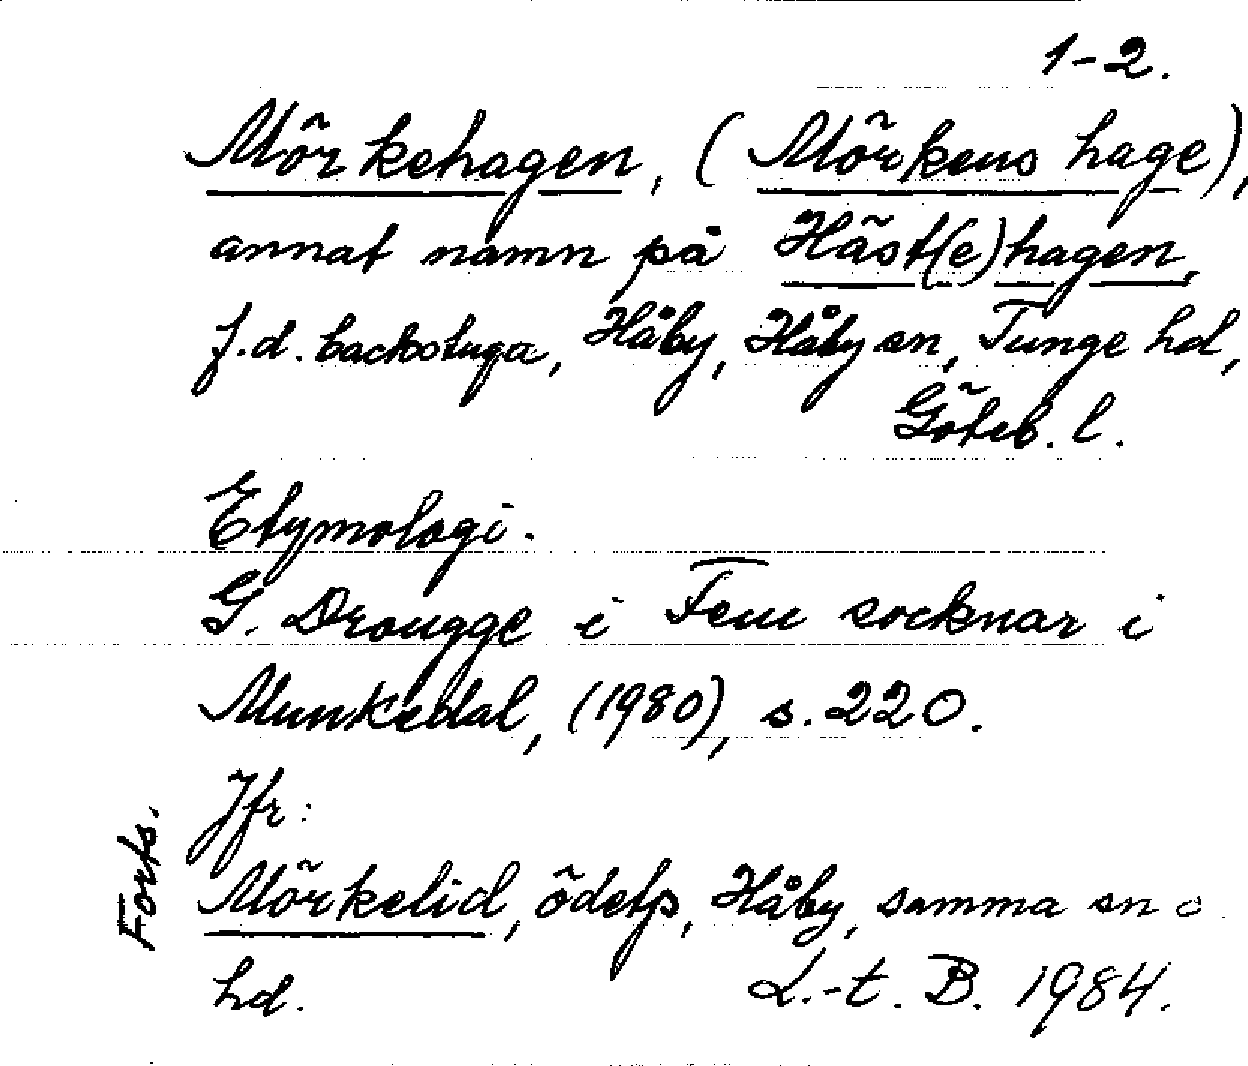 1-2.
Mörkehagen, (Mörkens hage),
annat namn på Häst(e)hagen,
f.d. backstuga, Håby, Håby sn, Tunge hd,
Göteb. l.
Etymologi.
G. Drougge i Fem socknar i
Munkedal, (1980), s. 220.
Jfr:
Mörkelid, ödetp, Håby, samma sn o
hd. L.-t. B. 1984.
Forts.